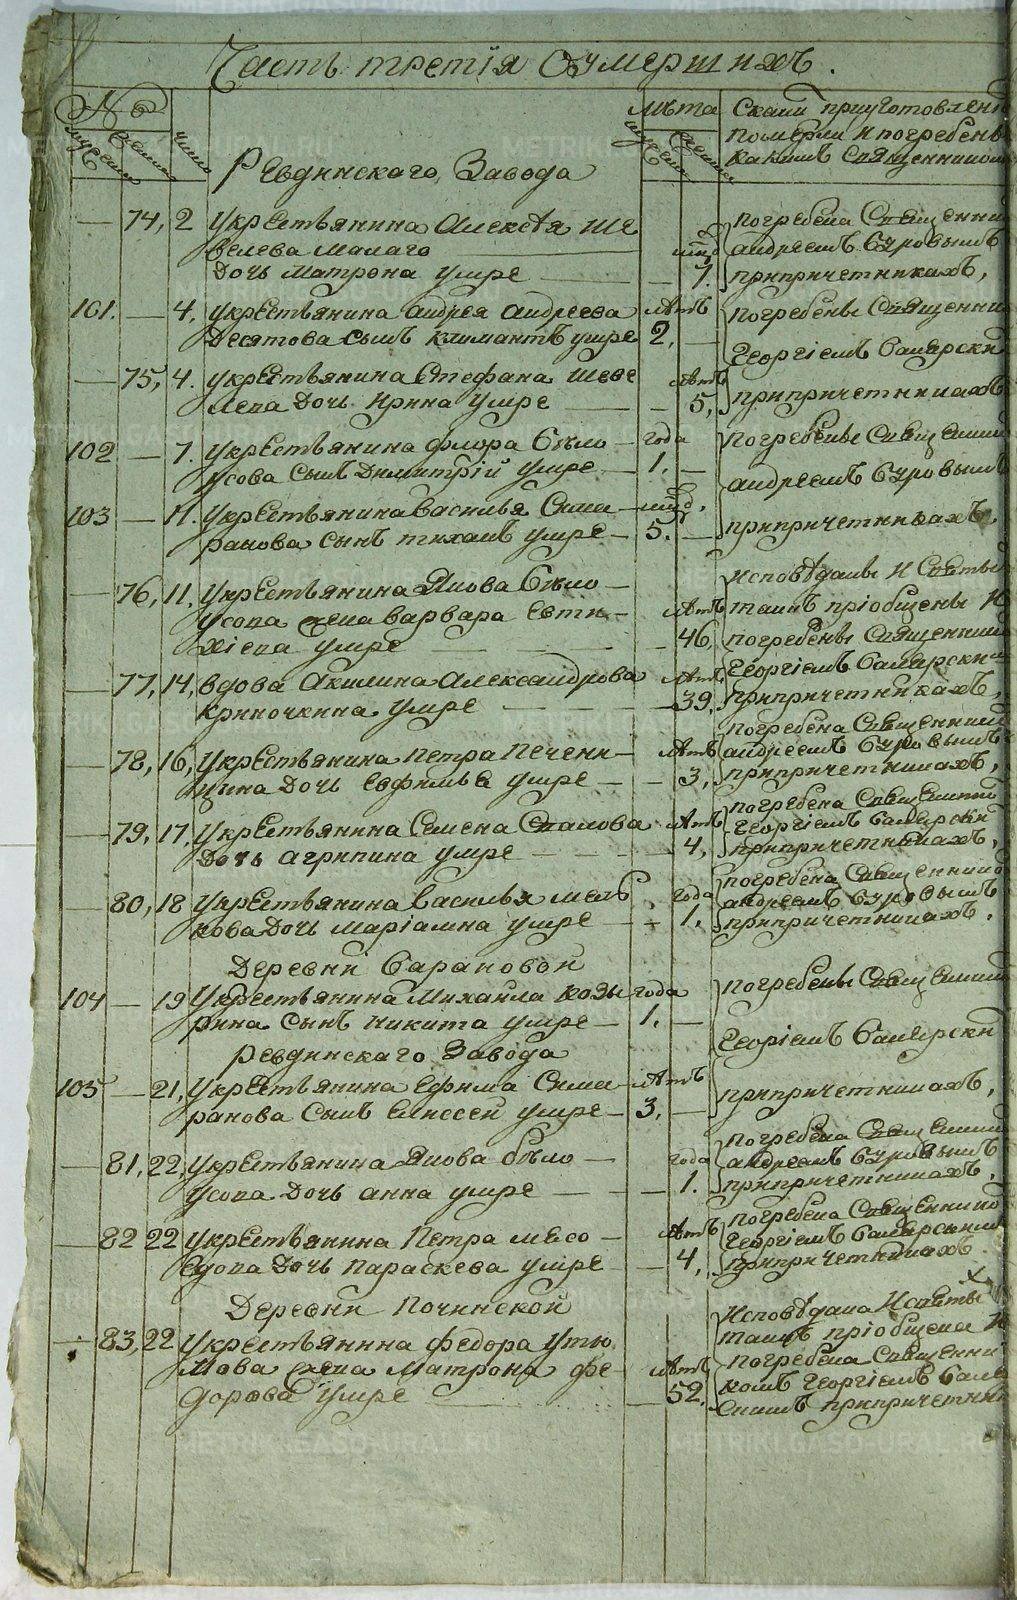 Часть третія Оумершихъ.
№
мужеска
женска
число
лѣта
мужеска
женска
Скаким приуготовлені
померли и погребены
какимъ священником
Ревдинскаго Завода
74, 2 укрестьянина Алексѣя Ше
велева малаго
Дочь Матрона умре
7.
погребена Священни
андреемъ Суровымъ
припричетникахъ,
101. 4. укрестьянина андрея андреева
Десятова сынъ климантъ умре
лѣтъ
2,
погребены Священни
Георгіемъ
припричетникахъ
75, 4. укрестьянина Стефана шеве
лева Дочь Ирина умре
лѣтъ
5,
102 7. укрестьянина флора бѣло
усова сынъ Димитрій умре
года
1.
погребены Священни
андреемъ Суровымъ
припричетникахъ,
103 11. укрестьянина василья Сима
ранова сынъ тиханъ умре
5.
76, 11. укрестьянина Якова бѣло
усова жена варвара Евти
хіева умре
лѣтъ
46,
исповѣданы и Святых
таинъ пріобщены и
погребены Священник
Георгіемъ
припричетникахъ,
77, 14, вдова Акилина Александрова
Криночкина умре
лѣтъ
39,
78, 16, укрестьянина петра печени
цина Дочь Евфимья умре
лѣтъ
3,
погребена Священник
андреемъ Суровымъ
припричетникахъ,
79, 17, укрестьянина Семена
Дочь агрипина умре
лѣтъ
4,
погребена Священник
Георгіемъ
припричетникахъ,
80, 18 укрестьянина василья мель
кова Дочь маріамна умре
года
1,
погребена Священник
андреемъ Суровымъ
припричетникахъ,
Деревни Барановой
104 19 укрестьянина Михаила козы
рина сынъ никита умре
года
1.
погребены Священник
Георгіемъ
припричетникахъ,
Ревдинскаго Завода
105 21, укрестьянина Ефима Сима
ранова сынъ Елисей умре
лѣтъ
3,
81, 22, укрестьянина Якова бѣло
усова Дочь анна умре
года
1.
погребена Священник
андреемъ Суровымъ
припричетникахъ,
82 22 укрестьянина Петра месо
едова Дочь параскева умре
лѣтъ
4,
погребена Священнико
Георгіемъ
припричетникахъ.
Деревни Починской
83, 22 укрестьянина федора утю
мова жена Матрона фе
дорова умре
лѣтъ
52.
исповѣдана и святых
таинъ пріобщена и
погребена Священни
комъ Георгіемъ
припричетник
METRIKI.GASO-URAL.RU